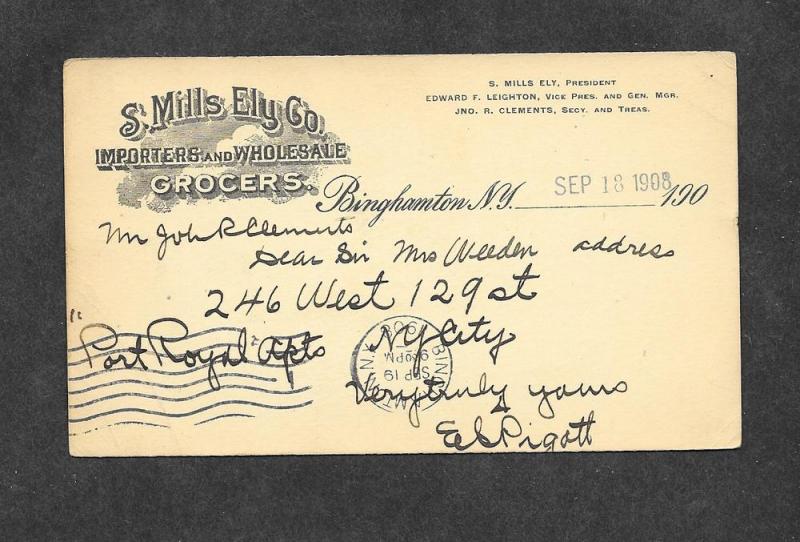 S. Mills Ely Co.
IMPORTERS AND WHOLESALE
GROCERS.
S. MILLS ELY, PRESIDENT
EDWARD F. LEIGHTON, VICE PRES. AND GEN. MGR.
JNO. R. CLEMENTS, SECY. AND TREAS.
Binghamton N.Y. SEP 18 1908 190
Mr Joh R Clements
Dear Sir Mrs Weeden address
246 West 129 st
"Port Royal Apts NY City
Very truly yours
E S Pigott
SEP 19
1908